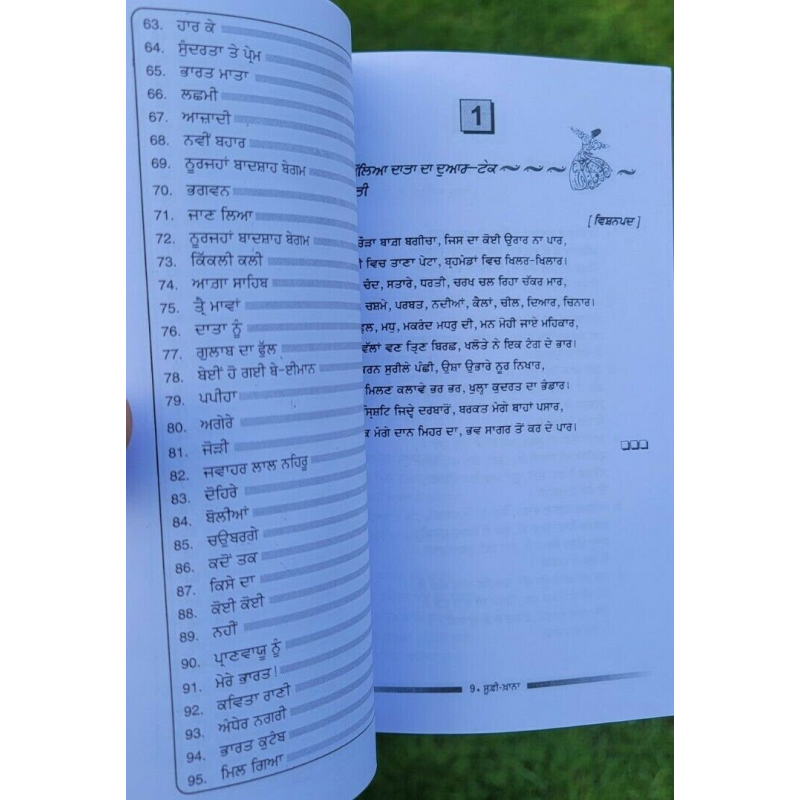 63. ਹਾਰ ਕੇ
64. ਸੁੰਦਰਤਾ ਤੇ ਪ੍ਰੇਮ
65. ਭਾਰਤ ਮਾਤਾ
66. ਲਛਮੀ
67. ਆਜ਼ਾਦੀ
68. ਨਵੀਂ ਬਹਾਰ
69. ਨੂਰਜਹਾਂ ਬਾਦਸ਼ਾਹ ਬੇਗਮ
70. ਭਗਵਨ
71. ਜਾਣ ਲਿਆ
72. ਨੂਰਜਹਾਂ ਬਾਦਸ਼ਾਹ ਬੇਗਮ
73. ਕਿੱਕਲੀ ਕਲੀ
74. ਆਗ਼ਾ ਸਾਹਿਬ
75. ਤ੍ਰੈ ਮਾਵਾਂ
76. ਦਾਤਾ ਨੂੰ
77. ਗੁਲਾਬ ਦਾ ਫੁੱਲ
78. ਬੇਈਂ ਹੋ ਗਈ ਬੇ-ਈਮਾਨ
79. ਪਪੀਹਾ
80. ਅਗੇਰੇ
81. ਜੋੜੀ
82. ਜਵਾਹਰ ਲਾਲ ਨਹਿਰੂ
83. ਦੋਹਿਰੇ
84. ਬੋਲੀਆਂ
85. ਚਉਬਰਗੇ
86. ਕਦੋਂ ਤਕ
87. ਕਿਸੇ ਦਾ
88. ਕੋਈ ਕੋਈ
89. ਨਹੀਂ
90. ਪ੍ਰਾਣਵਾਯੂ ਨੂੰ
91. ਮੇਰੇ ਭਾਰਤ!
92. ਕਵਿਤਾ ਰਾਣੀ
93. ਅੰਧੇਰ ਨਗਰੀ
94. ਭਾਰਤ ਕੁਟੰਬ
95. ਮਿਲ ਗਿਆ
1
ਦਾਤਾ ਦਾ ਦੁਆਰ—ਟੇਕ
[ਵਿਸ਼ਨਪਦ]
ਬਾਗ਼ ਬਗੀਚਾ, ਜਿਸ ਦਾ ਕੋਈ ਉਰਾਰ ਨਾ ਪਾਰ,
ਵਿਚ ਤਾਣਾ ਪੇਟਾ, ਬ੍ਰਹਮੰਡਾਂ ਵਿਚ ਖਿਲਰ-ਖਿਲਾਰ।
ਚੰਦ, ਸਤਾਰੇ, ਧਰਤੀ, ਚਰਖ ਚਲ ਰਿਹਾ ਚੱਕਰ ਮਾਰ,
ਚਸ਼ਮੇ, ਪਰਬਤ, ਨਦੀਆਂ, ਕੈਲਾਂ, ਚੀਲ, ਦਿਆਰ, ਚਿਨਾਰ।
ਮਧੁ, ਮਕਰੰਦ ਮਧਰੁ ਦੀ, ਮਨ ਮੋਹੀ ਜਾਏ ਮਹਿਕਾਰ,
ਵਣ ਤ੍ਰਿਣ ਬਿਰਛ, ਖਲੋਤੇ ਨੇ ਇਕ ਟੰਗ ਦੇ ਭਾਰ।
ਸੁਰੀਲੇ ਪੰਛੀ, ਉਸ਼ਾ ਉਭਾਰੇ ਨੂਰ ਨਿਖਾਰ,
ਮਿਲਣ ਕਲਾਵੇ ਭਰ ਭਰ, ਖੁਲ੍ਹਾ ਕੁਦਰਤ ਦਾ ਭੰਡਾਰ।
ਜਿਦ੍ਹੇ ਦਰਬਾਰੋਂ, ਬਰਕਤ ਮੰਗੇ ਬਾਹਾਂ ਪਸਾਰ,
ਮੰਗੇ ਦਾਨ ਮਿਹਰ ਦਾ, ਭਵ ਸਾਗਰ ਤੋਂ ਕਰ ਦੇ ਪਾਰ।
9 • ਸੂਫ਼ੀ-ਖ਼ਾਨਾ